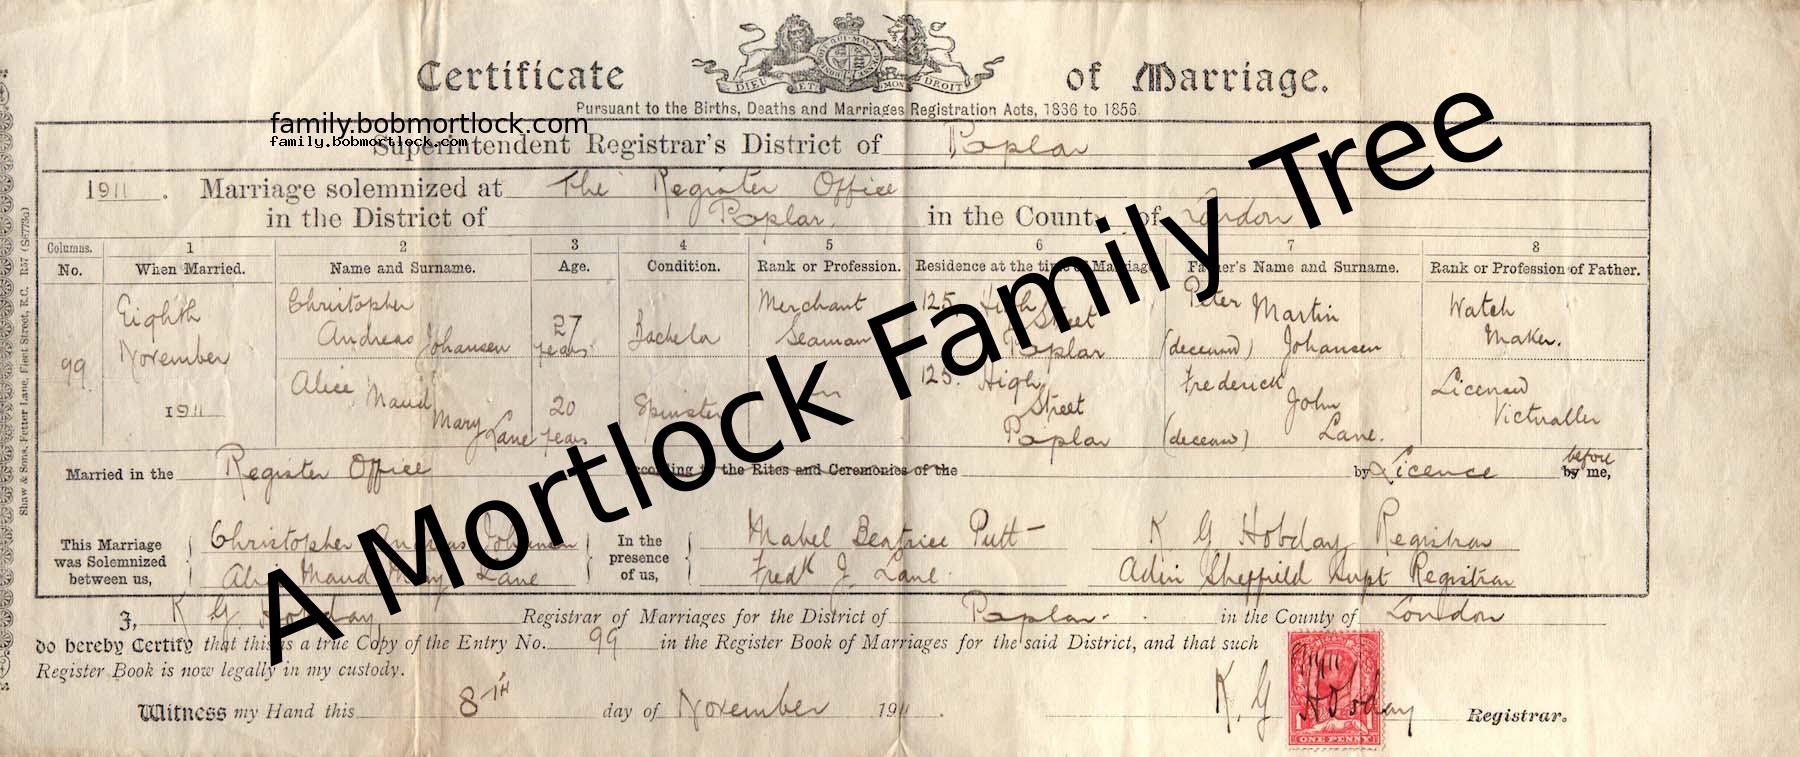 Certificate of Marriage.
DIEU ET MON DROIT
Pursuant to the Births, Deaths and Marriages Registration Acts, 1836 to 1856.
family.bobmortlock.com
family.bobmortlock.com
Superintendent Registrar's District of Poplar
1911. Marriage solemnized at The Register Office
in the District of Poplar. in the County of London
Columns. 1 2 3 4 5 6 7 8
No. When Married. Name and Surname. Age. Condition. Rank or Profession. Residence at the time of Marriage Father's Name and Surname. Rank or Profession of Father.
99 Eighth November 1911
Christopher Andreas Johansen 27 years Bachelor Merchant Seaman 125 High Street Poplar Peter Martin Johansen (deceased) Watch Maker.
Alice Maud Mary Lane 20 years Spinster 125. High Street Poplar Frederick John Lane. (deceased) Licensed Victualler
Married in the Register Office according to the Rites and Ceremonies of the by Licence before by me,
This Marriage was Solemnized between us,
Christopher Andreas Johansen
Alice Maud Mary Lane
In the presence of us,
Mabel Beatrice Putt
Fredk J. Lane.
K G Hobday Registrar
Sheffield Supt Registrar
I, K G. Hobday, Registrar of Marriages for the District of Poplar. in the County of London
do hereby Certify that this is a true Copy of the Entry No. 99 in the Register Book of Marriages for the said District, and that such
Register Book is now legally in my custody.
Witness my Hand this 8TH day of November 1911. K. G Hobday Registrar.
ONE PENNY
Shaw & Sons, Fetter Lane, Fleet Street, E.C. R57 (S6773a)
A Mortlock Family Tree